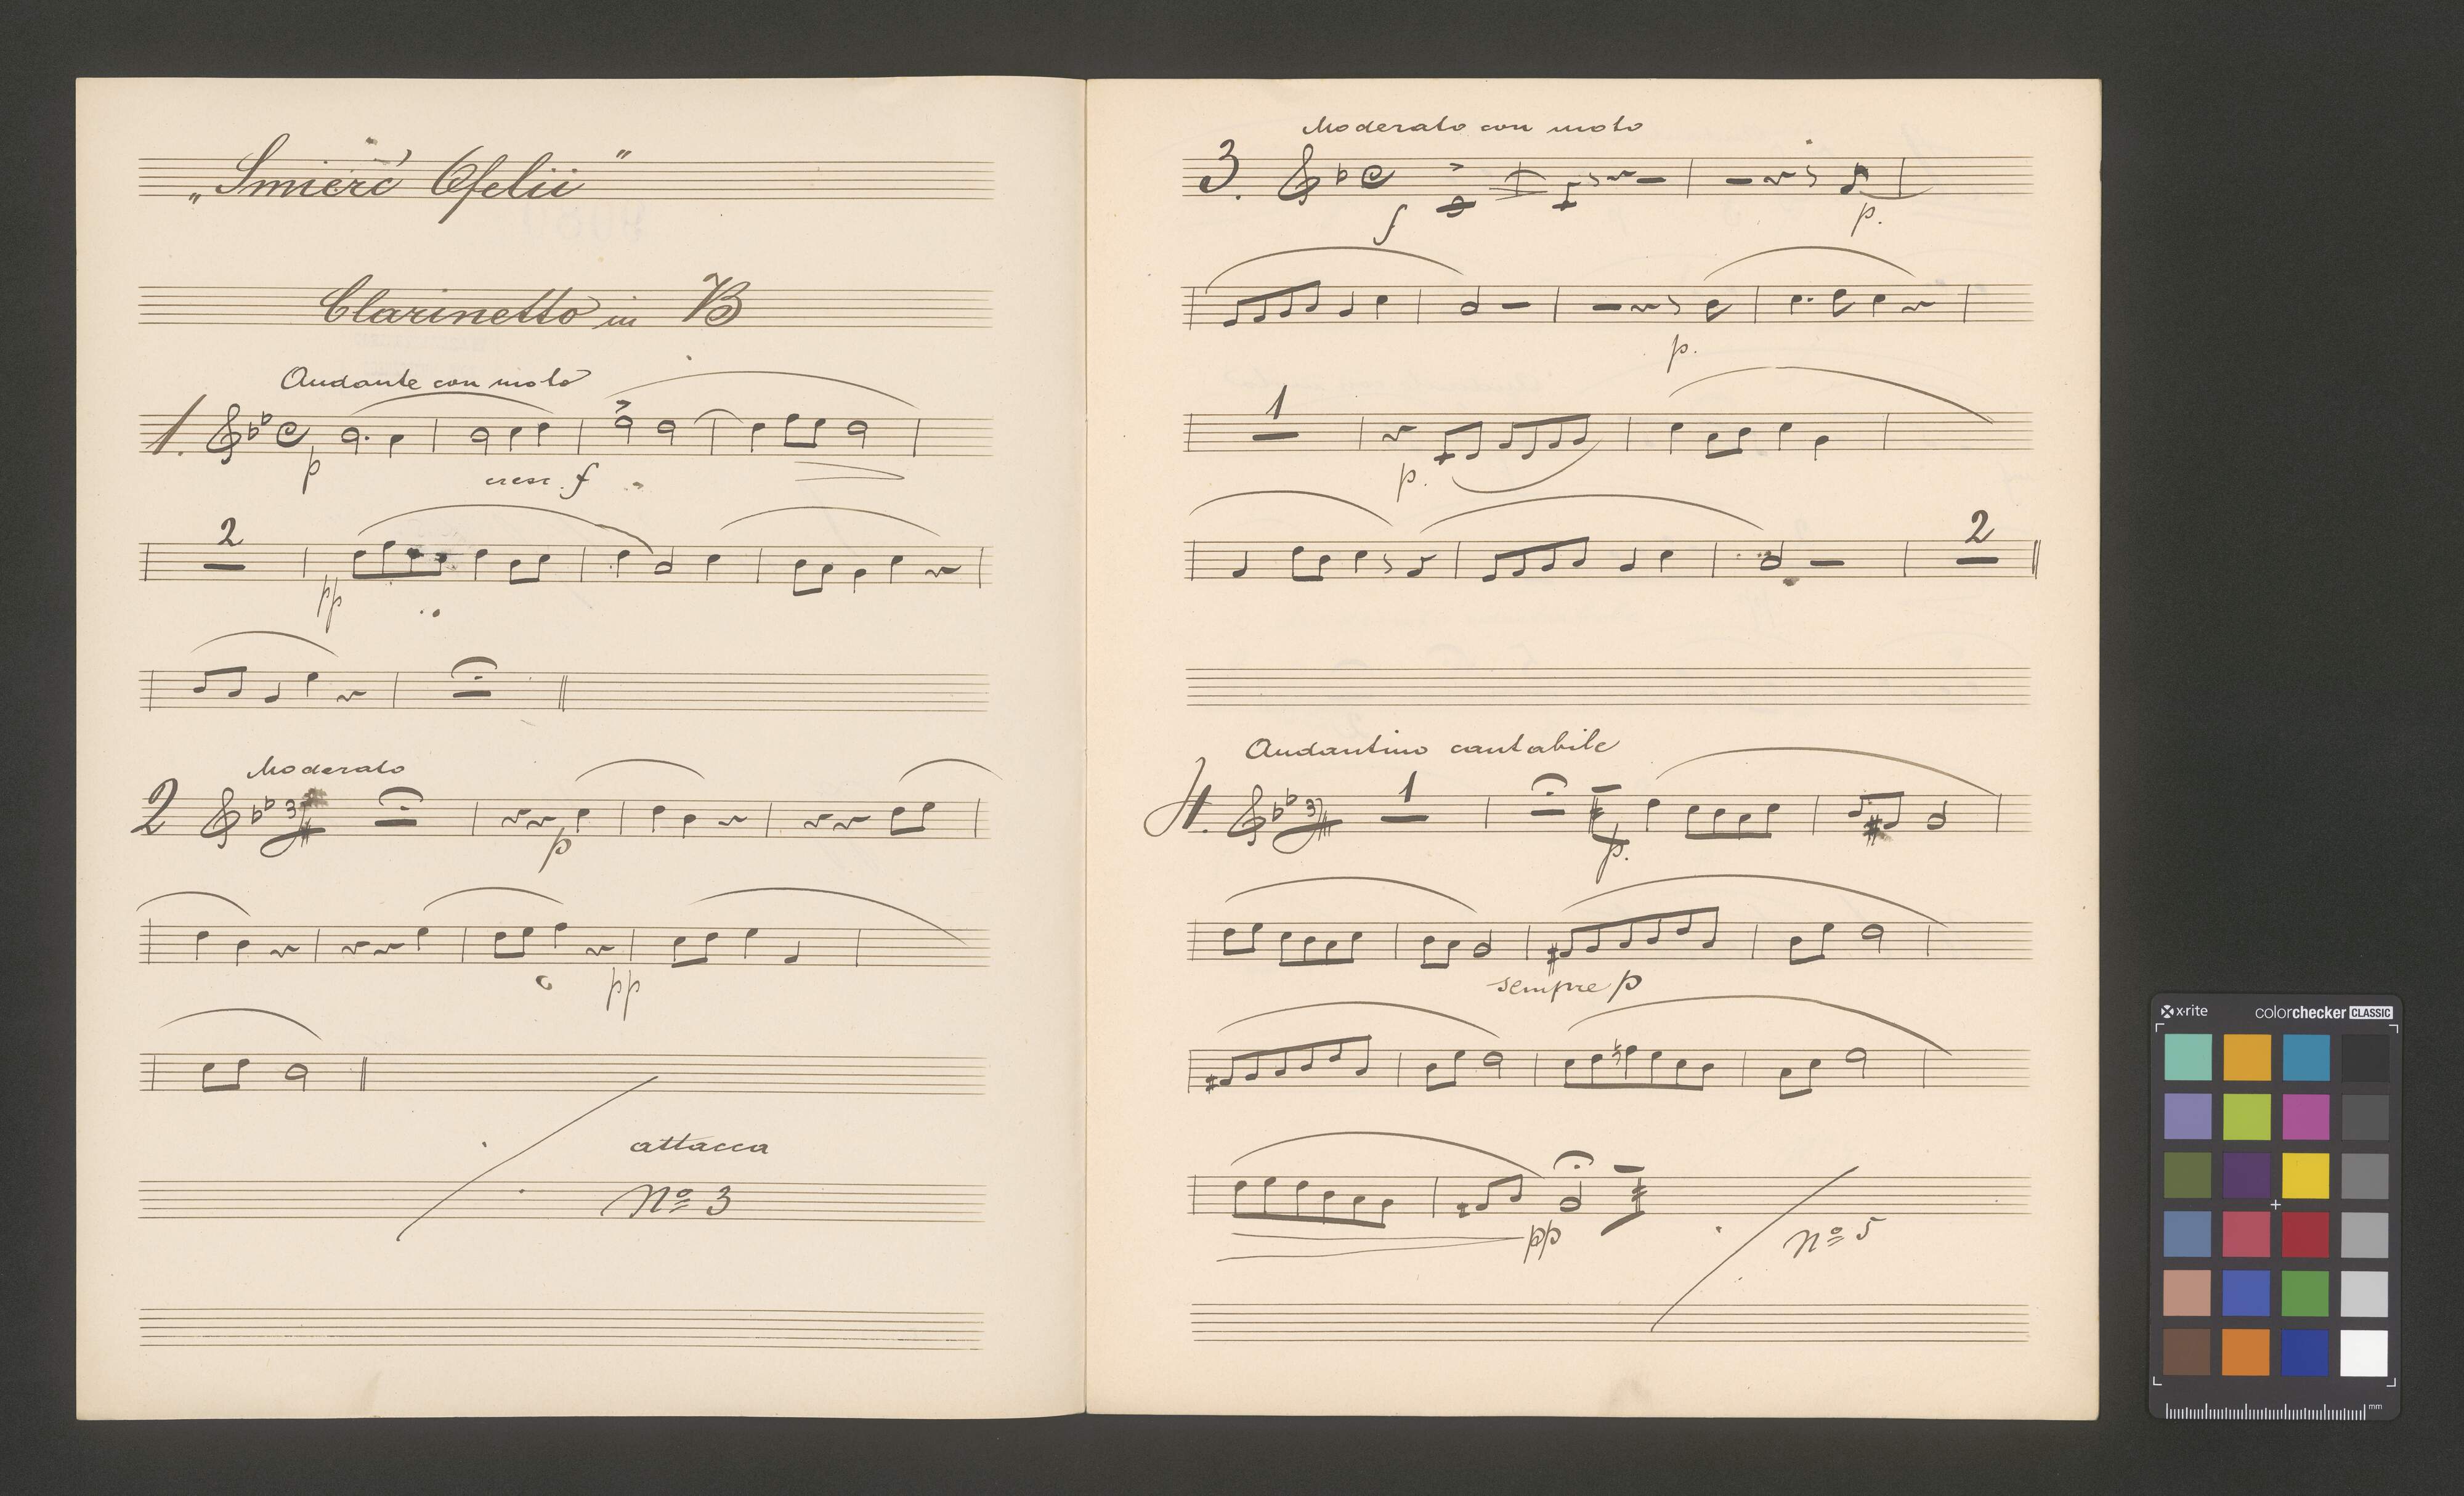 „Śmierć Ofelii”
Clarinetto in B
Andante con moto
1.
p
cresc. f
2
pp
Moderato
2
3
4
p
pp
attacca
Nº 3
Moderato con moto
3.
f
p.
p.
1
p.
2
Andantino cantabile
4.
3
4
1
p.
sempre p
pp
Nº 5
x-rite
colorchecker CLASSIC
mm